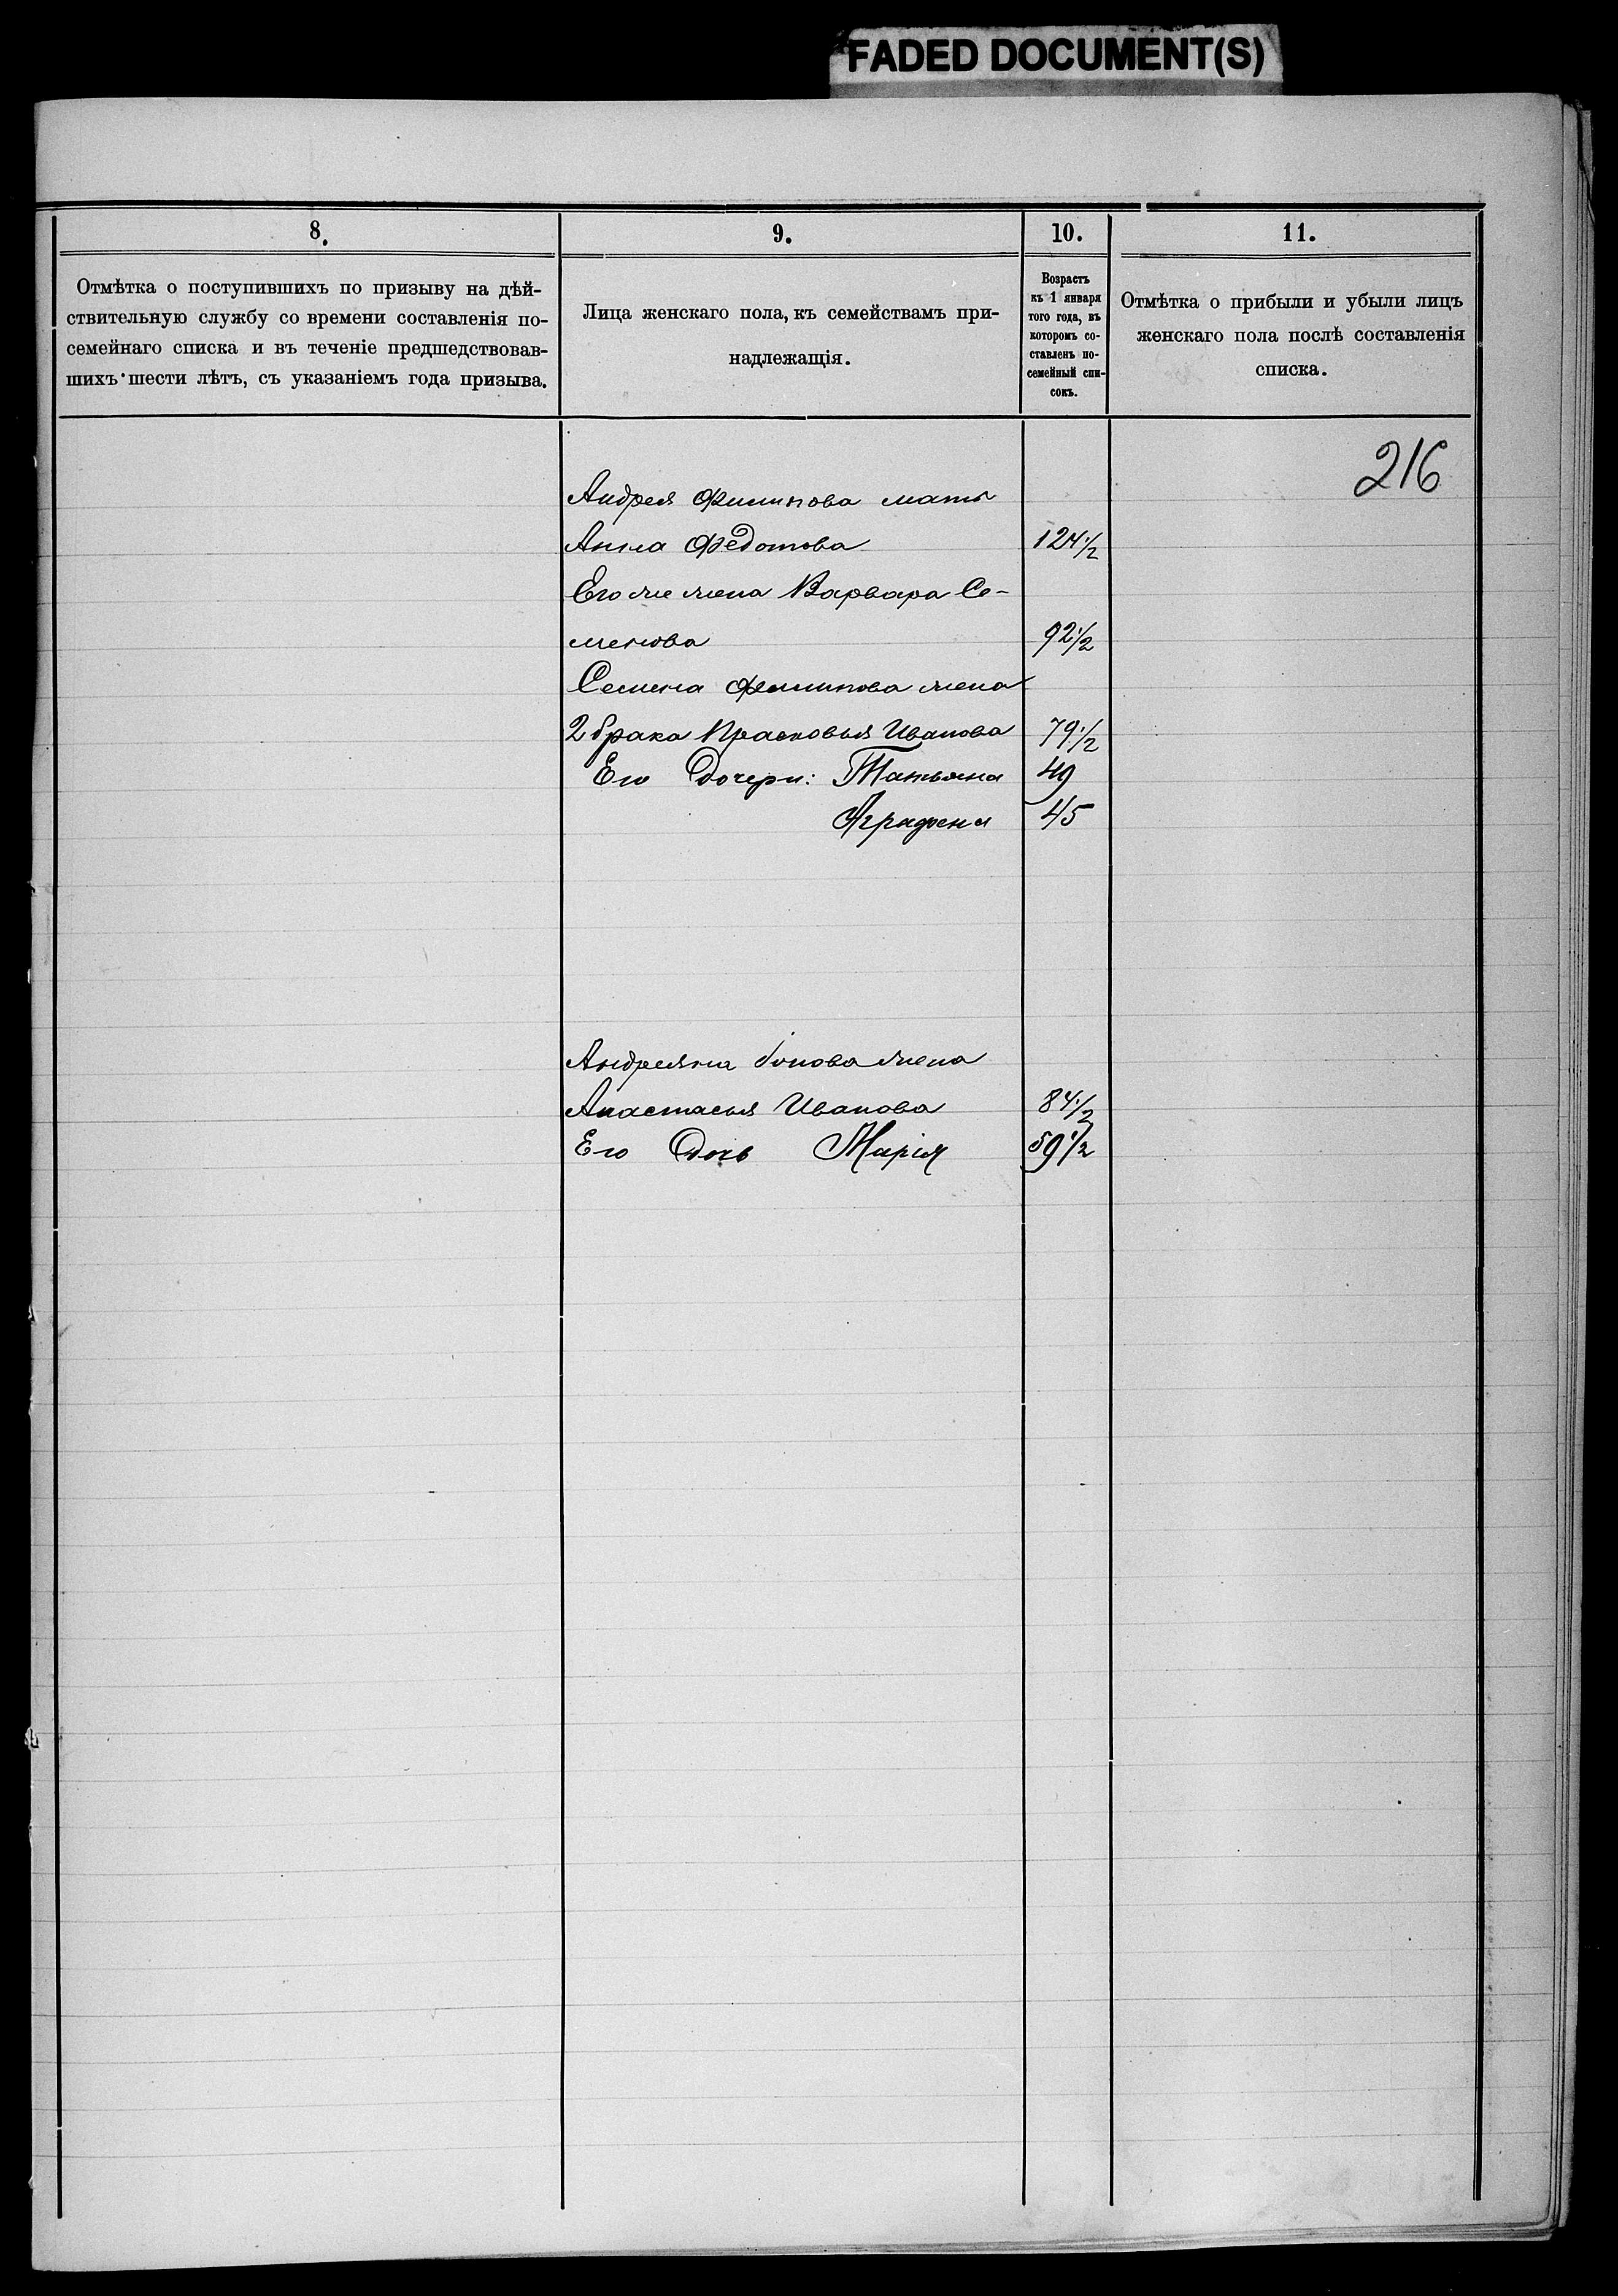 FADED DOCUMENT(S)
8.
9.
10.
11.
Отмѣтка о поступившихъ по призыву на дѣй-
ствительную службу со времени составленія по-
семейнаго списка и въ теченіе предшедствовав-
шихъ шести лѣтъ, съ указаніемъ года призыва.
Лица женскаго пола, къ семействамъ при-
надлежащія.
Возрастъ
къ 1 января
того года, въ
которомъ со-
ставленъ по-
семейный спи-
сокъ.
Отмѣтка о прибыли и убыли лицъ
женскаго пола послѣ составленія
списка.
216
Андрея Филипова мать
Анна Федотова 124 1/2
Его же жена Варвара Се-
менова 92 1/2
Семена Филипова жена
2 брака Прасковья Иванова 79 1/2
Его Дочери: Татьяна 49
Аграфена 45
Андреяна жена
Анастасья Иванова 84 1/2
Его Дочь Марія 59 1/2